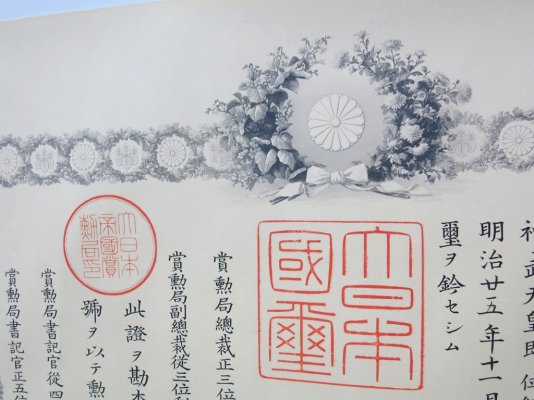 神武天皇即位
明治廿五年十一月
璽ヲ鈐セシム
大日本
國璽
賞勲局總裁正三位
賞勲局副總裁從三位
此證ヲ勘
號ヲ以テ勲
大日本
帝國賞
勲局印
賞勲局書記官從四
賞勲局書記官正五位